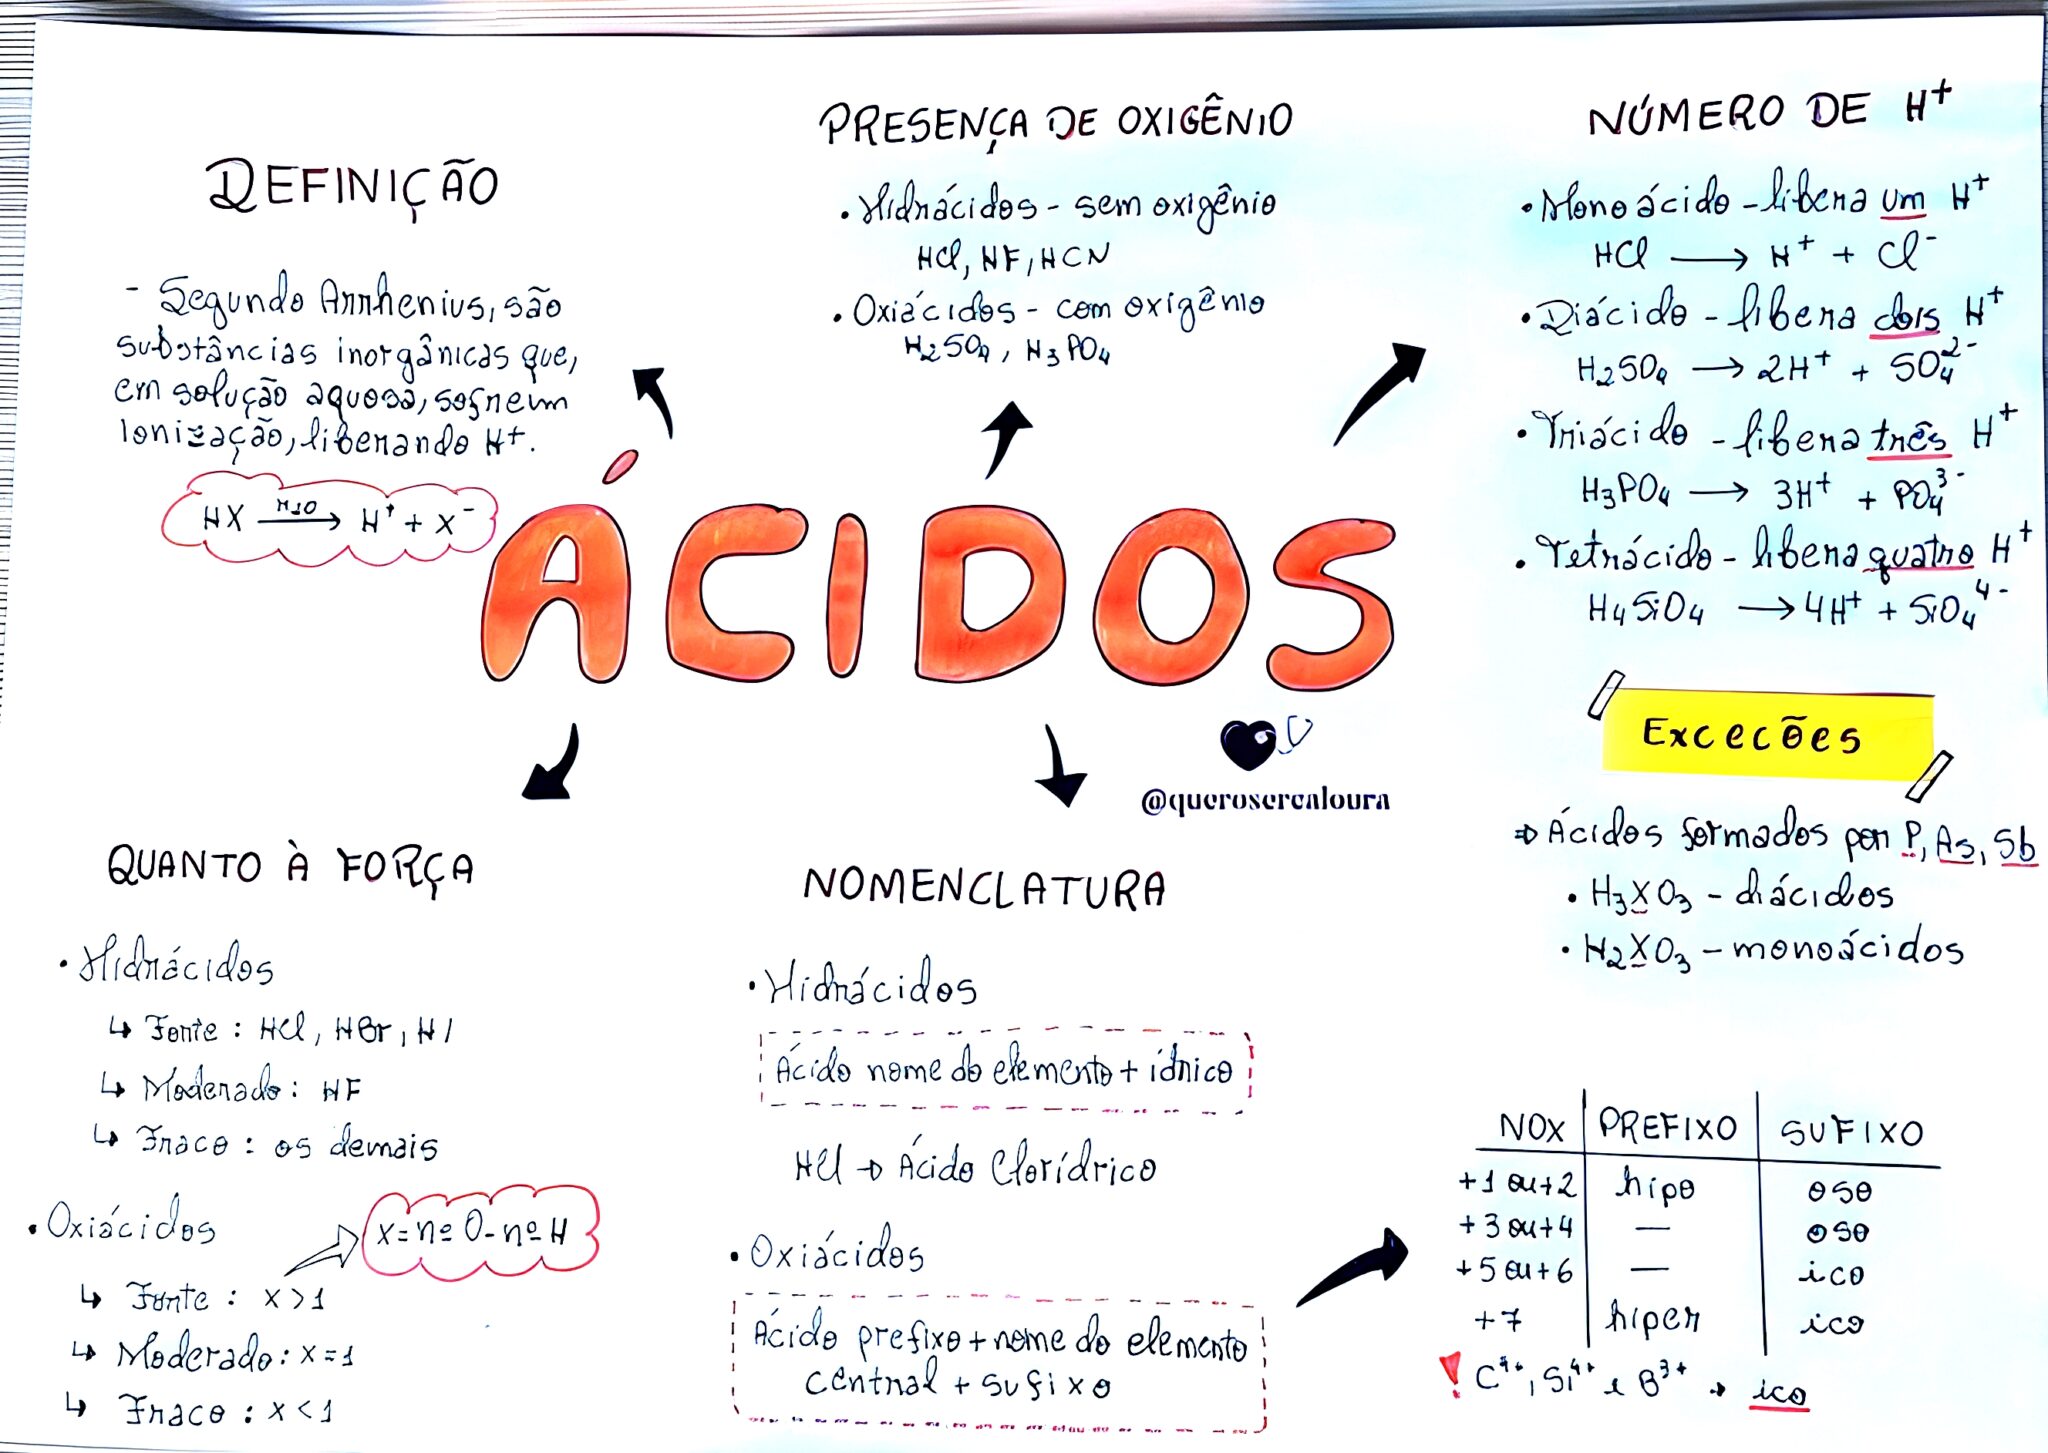 DEFINIÇÃO
- Segundo Arrhenius, são
substâncias inorgânicas que,
em solução aquosa, sofrem
ionização, liberando H⁺.
HX —H₂O→ H⁺ + X⁻
PRESENÇA DE OXIGÊNIO
• Hidrácidos - sem oxigênio
HCl, HF, HCN
• Oxiácidos - com oxigênio
H₂SO₄, H₃PO₄
NÚMERO DE H⁺
• Monoácido - libera um H⁺
HCl → H⁺ + Cl⁻
• Diácido - libera dois H⁺
H₂SO₄ → 2H⁺ + SO₄²⁻
• Triácido - libera três H⁺
H₃PO₄ → 3H⁺ + PO₄³⁻
• Tetrácido - libera quatro H⁺
H₄SiO₄ → 4H⁺ + SiO₄⁴⁻
ÁCIDOS
@querosercaloura
Excecões
⇒ Ácidos formados por P, As, Sb
• H₃XO₃ - diácidos
• H₂XO₃ - monoácidos
QUANTO À FORÇA
• Hidrácidos
↳ Forte : HCl, HBr, HI
↳ Moderado: HF
↳ Fraco : os demais
• Oxiácidos
x = nº O - nº H
↳ Forte : x > 1
↳ Moderado: x = 1
↳ Fraco : x < 1
NOMENCLATURA
• Hidrácidos
Ácido nome do elemento + ídrico
HCl → Ácido Clorídrico
• Oxiácidos
Ácido prefixo + nome do elemento
central + sufixo
NOX PREFIXO SUFIXO
+1 ou +2 hipo oso
+3 ou +4 — oso
+5 ou +6 — ico
+7 hiper ico
! C⁴⁺, Si⁴⁺ e B³⁺ → ico